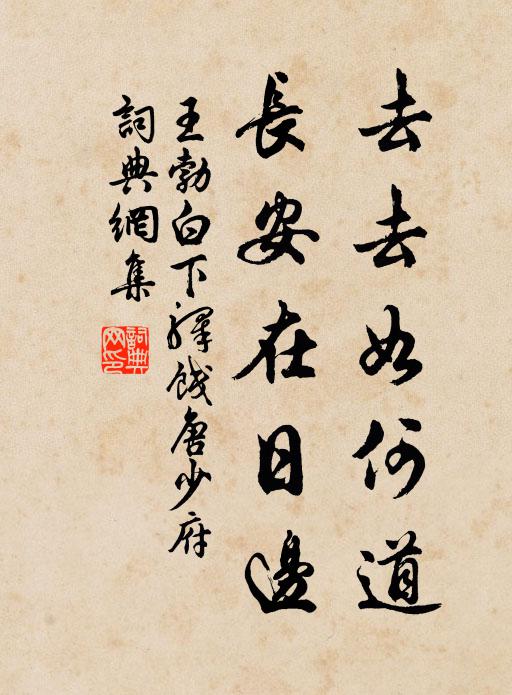 去去如何道
長安在日邊
王勃白下驛餞唐少府
詞典網集
詞典
网印